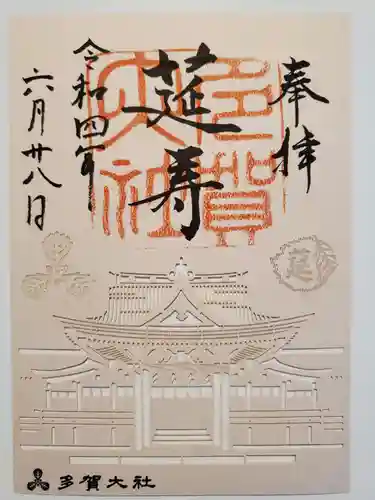 奉拝
莚寿
多賀
大社
令和四年
六月廿八日
莚
多賀大社